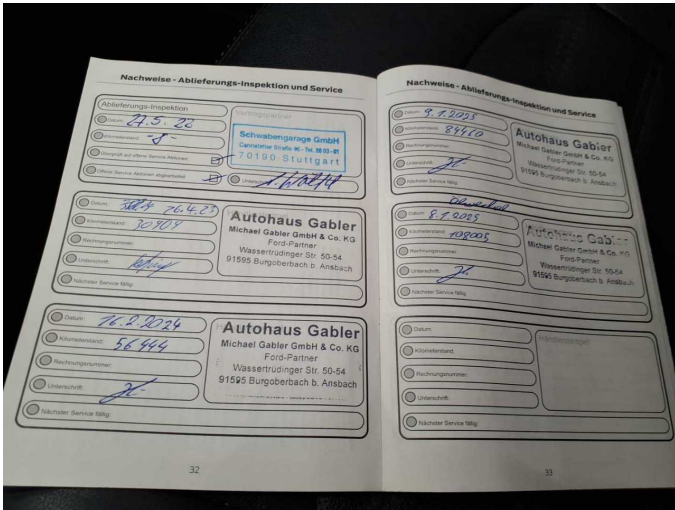 Nachweise - Ablieferungs-Inspektion und Service
Ablieferungs-Inspektion
Datum: 27.5. 22
Kilometerstand: -8-
Überprüft auf offene Service Aktionen:
Offene Service Aktionen abgearbeitet:
Vertragspartner
Schwabengarage GmbH
Cannstatter Straße 46 - Tel. 28 03 - 01
70190 Stuttgart
Unterschrift:
Datum: 26.4.23
Kilometerstand: 30904
Rechnungsnummer:
Unterschrift:
Nächster Service fällig:
Autohaus Gabler
Michael Gabler GmbH & Co. KG
Ford-Partner
Wassertrüdinger Str. 50-54
91595 Burgoberbach b. Ansbach
Datum: 16.2.2024
Kilometerstand: 56444
Rechnungsnummer:
Unterschrift:
Nächster Service fällig:
Autohaus Gabler
Michael Gabler GmbH & Co. KG
Ford-Partner
Wassertrüdinger Str. 50-54
91595 Burgoberbach b. Ansbach
32
Nachweise - Ablieferungs-Inspektion und Service
Datum: 9.1.2025
Kilometerstand: 84460
Rechnungsnummer:
Unterschrift:
Nächster Service fällig:
Autohaus Gabler
Michael Gabler GmbH & Co. KG
Ford-Partner
Wassertrüdinger Str. 50-54
91595 Burgoberbach b. Ansbach
Ölwechsel
Datum: 8.7.2025
Kilometerstand: 108005
Rechnungsnummer:
Unterschrift:
Nächster Service fällig:
Autohaus Gabler
Michael Gabler GmbH & Co. KG
Ford-Partner
Wassertrüdinger Str. 50-54
91595 Burgoberbach b. Ansbach
Datum:
Kilometerstand:
Rechnungsnummer:
Unterschrift:
Nächster Service fällig:
Händlerstempel
33